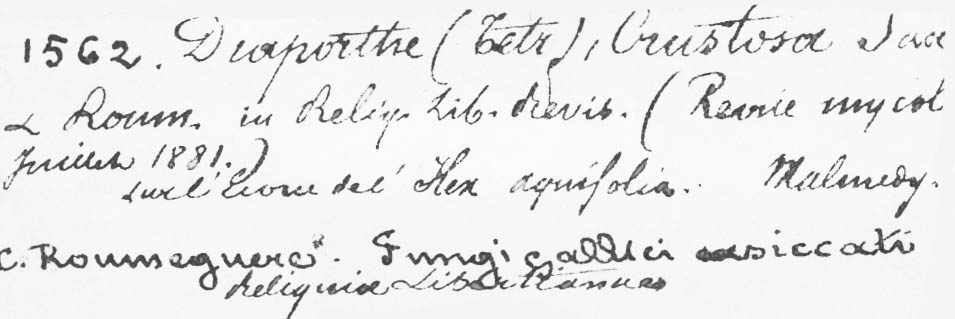 1562. Diaporthe (Tetr), Crustosa Sacc
& Roum. in Reliq. Lib. Revis. (Revue mycol
Juillet 1881.)
sur l'Ecorce de l' Ilex aquifolia. Malmedy.
C. Roumeguere. Fungi gallici exsiccati
Reliquiae Libertianae